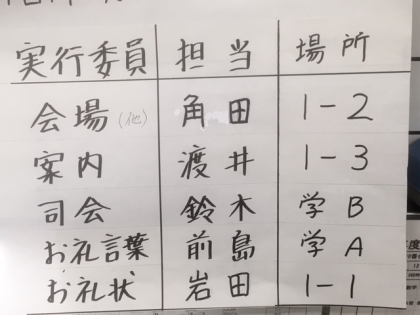 実行委員 担当 場所
会場(他) 角田 1-2
案内 渡井 1-3
司会 鈴木 学B
お礼言葉 前島 学A
お礼状 岩田 1-1